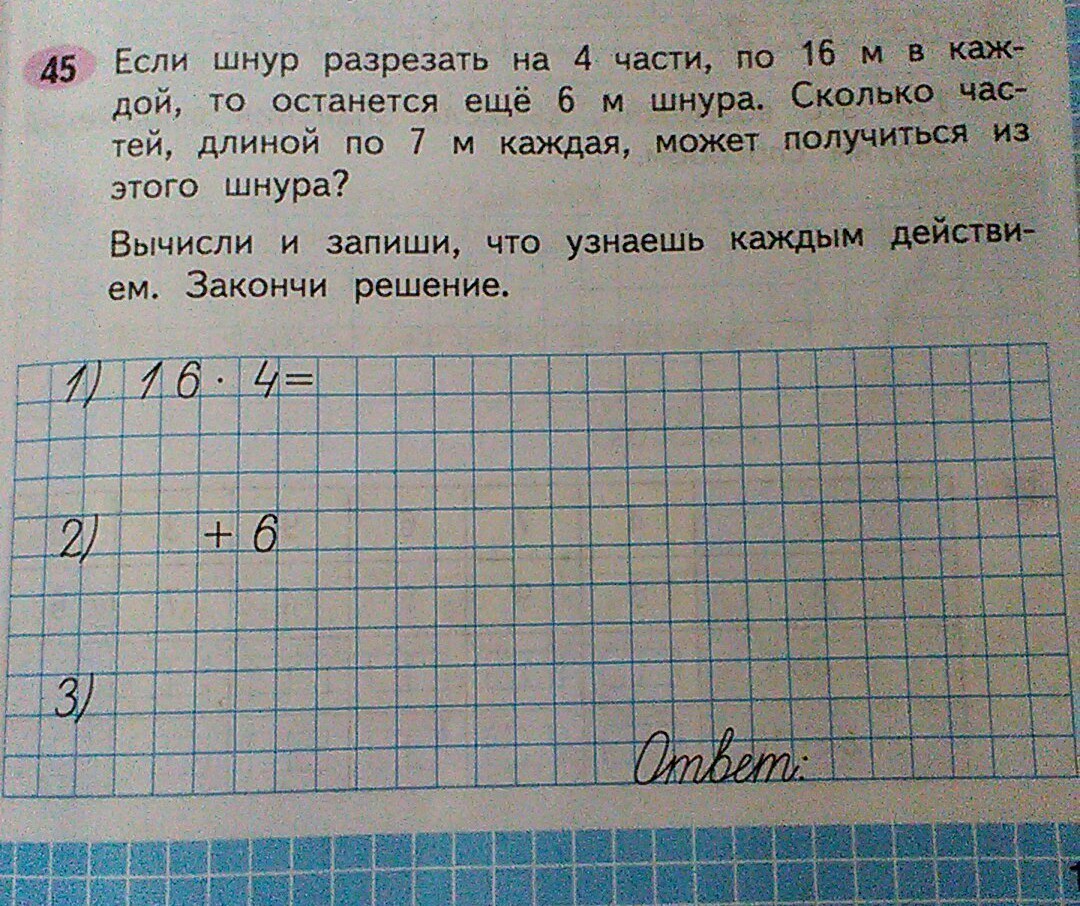 45 Если шнур разрезать на 4 части, по 16 м в каж-
дой, то останется ещё 6 м шнура. Сколько час-
тей, длиной по 7 м каждая, может получиться из
этого шнура?
Вычисли и запиши, что узнаешь каждым действи-
ем. Закончи решение.
1) 16 · 4=
2) + 6
3)
Ответ: